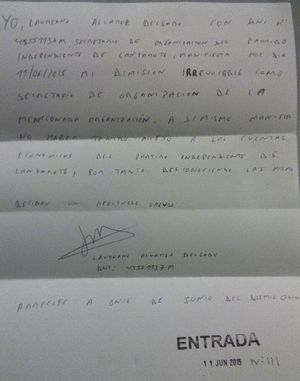 YO, LAUREANO ALVAREZ DELGADO CON DNI Nº
SECRETARIO DE ORGANIZACION DEL PARTIDO
INDEPENDIENTE DE LANZAROTE, MANIFIESTA POR DIA
11/06/2015 MI DIMISION IRREVOCABLE COMO
SECRETARIO DE ORGANIZACION DE LA
MENCIONADA ORGANIZACIÓN. A SI MISMO MANIFIE
NO HABER TENIDO ACCESO A LAS CUENTAS
ECONOMICAS DEL PARTIDO INDEPENDIENTE DE
LANZAROTE, POR TANTO, DESCONOCIENDO LAS MISM
RECIBAN UN AFECTUOSO SALUDO
LAUREANO ALVAREZ DELGADO
DNI:
ARRECIFE A ONCE DE JUNIO DEL DOSMIL QUIN
ENTRADA
11 JUN 2015 Nº 111